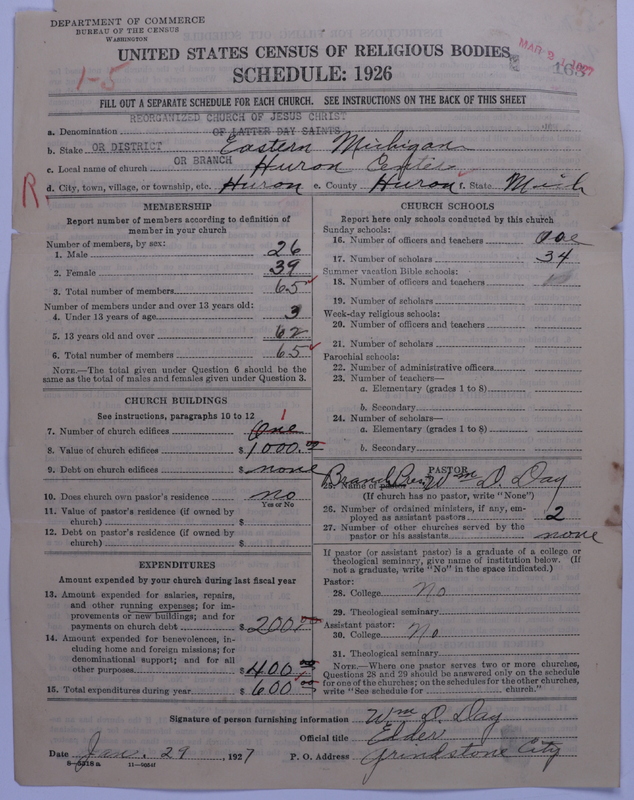 DEPARTMENT OF COMMERCE
BUREAU OF THE CENSUS
WASHINGTON
UNITED STATES CENSUS OF RELIGIOUS BODIES
SCHEDULE: 1926
MAR 2 1927
1-5
FILL OUT A SEPARATE SCHEDULE FOR EACH CHURCH. SEE INSTRUCTIONS ON THE BACK OF THIS SHEET
REORGANIZED CHURCH OF JESUS CHRIST
a. Denomination OF LATTER DAY SAINTS
b. Stake OR DISTRICT Eastern Michigan
c. Local name of church OR BRANCH Huron Center
R
d. City, town, village, or township, etc. Huron e. County Huron f. State Mich
MEMBERSHIP
Report number of members according to definition of
member in your church
Number of members, by sex:
1. Male 26
2. Female 39
3. Total number of members 65
Number of members under and over 13 years old:
4. Under 13 years of age 3
5. 13 years old and over 62
6. Total number of members 65
NOTE.—The total given under Question 6 should be the
same as the total of males and females given under Question 3.
CHURCH BUILDINGS
See instructions, paragraphs 10 to 12
7. Number of church edifices One 1
8. Value of church edifices $ 1000.00
9. Debt on church edifices $ none
10. Does church own pastor's residence no
Yes or No
11. Value of pastor's residence (if owned by
church) $
12. Debt on pastor's residence (if owned by
church) $
EXPENDITURES
Amount expended by your church during last fiscal year
13. Amount expended for salaries, repairs,
and other running expenses; for im-
provements or new buildings; and for
payments on church debt $ 200.00
14. Amount expended for benevolences, in-
cluding home and foreign missions; for
denominational support; and for all
other purposes $ 400.00
15. Total expenditures during year $ 600.00
CHURCH SCHOOLS
Report here only schools conducted by this church
Sunday schools:
16. Number of officers and teachers
17. Number of scholars 34
Summer vacation Bible schools:
18. Number of officers and teachers
19. Number of scholars
Week-day religious schools:
20. Number of officers and teachers
21. Number of scholars
Parochial schools:
22. Number of administrative officers
23. Number of teachers—
a. Elementary (grades 1 to 8)
b. Secondary
24. Number of scholars—
a. Elementary (grades 1 to 8)
b. Secondary
PASTOR
25. Name of pastor Branch Pres. Wm D. Day
(If church has no pastor, write "None")
26. Number of ordained ministers, if any, em-
ployed as assistant pastors 2
27. Number of other churches served by the
pastor or his assistants none
If pastor (or assistant pastor) is a graduate of a college or
theological seminary, give name of institution below. (If
not a graduate, write "No" in the space indicated.)
Pastor:
28. College No
29. Theological seminary
Assistant pastor:
30. College No
31. Theological seminary
NOTE.—Where one pastor serves two or more churches,
Questions 28 and 29 should be answered only on the schedule
for one of the churches; on the schedules for the other churches,
write "See schedule for church."
Signature of person furnishing information Wm D. Day
Official title Elder
Date Jan. 29, 1927 P. O. Address Grindstone City
8—5318 a 11—9054